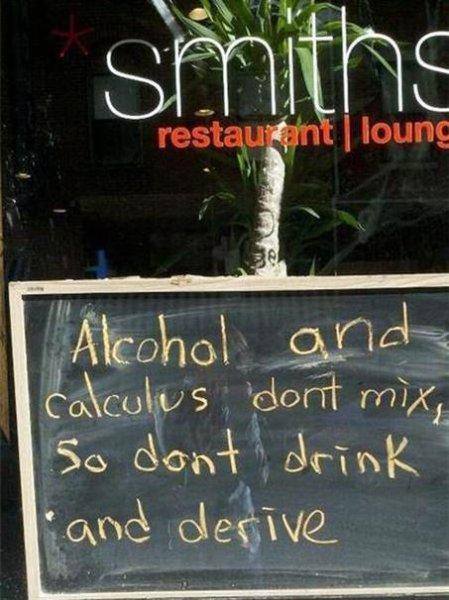 * smiths
restaurant | loung
Alcohol and
calculus dont mix,
So dont drink
and derive